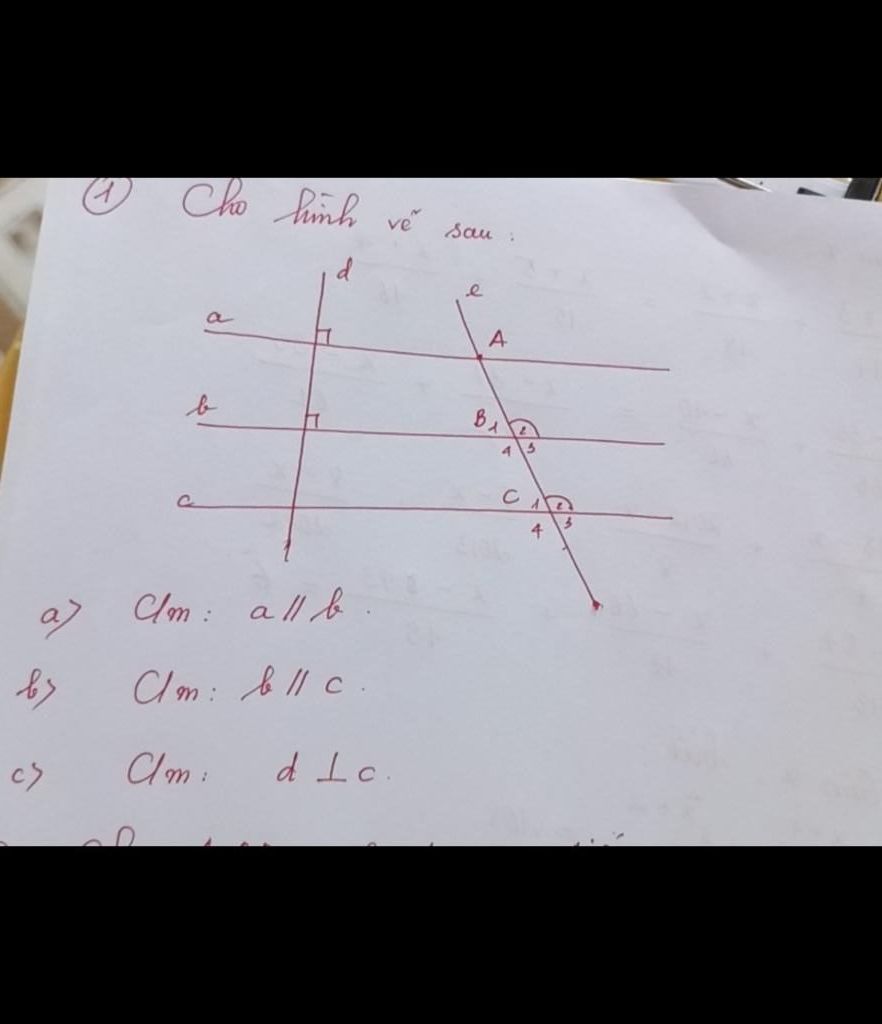 ① Cho hình vẽ sau:
d
e
a
A
b
B 1 2
4 3
c
C 1 2
4 3
a) Cm: a // b.
b) Cm: b // c.
c) Cm: d ⊥ c.